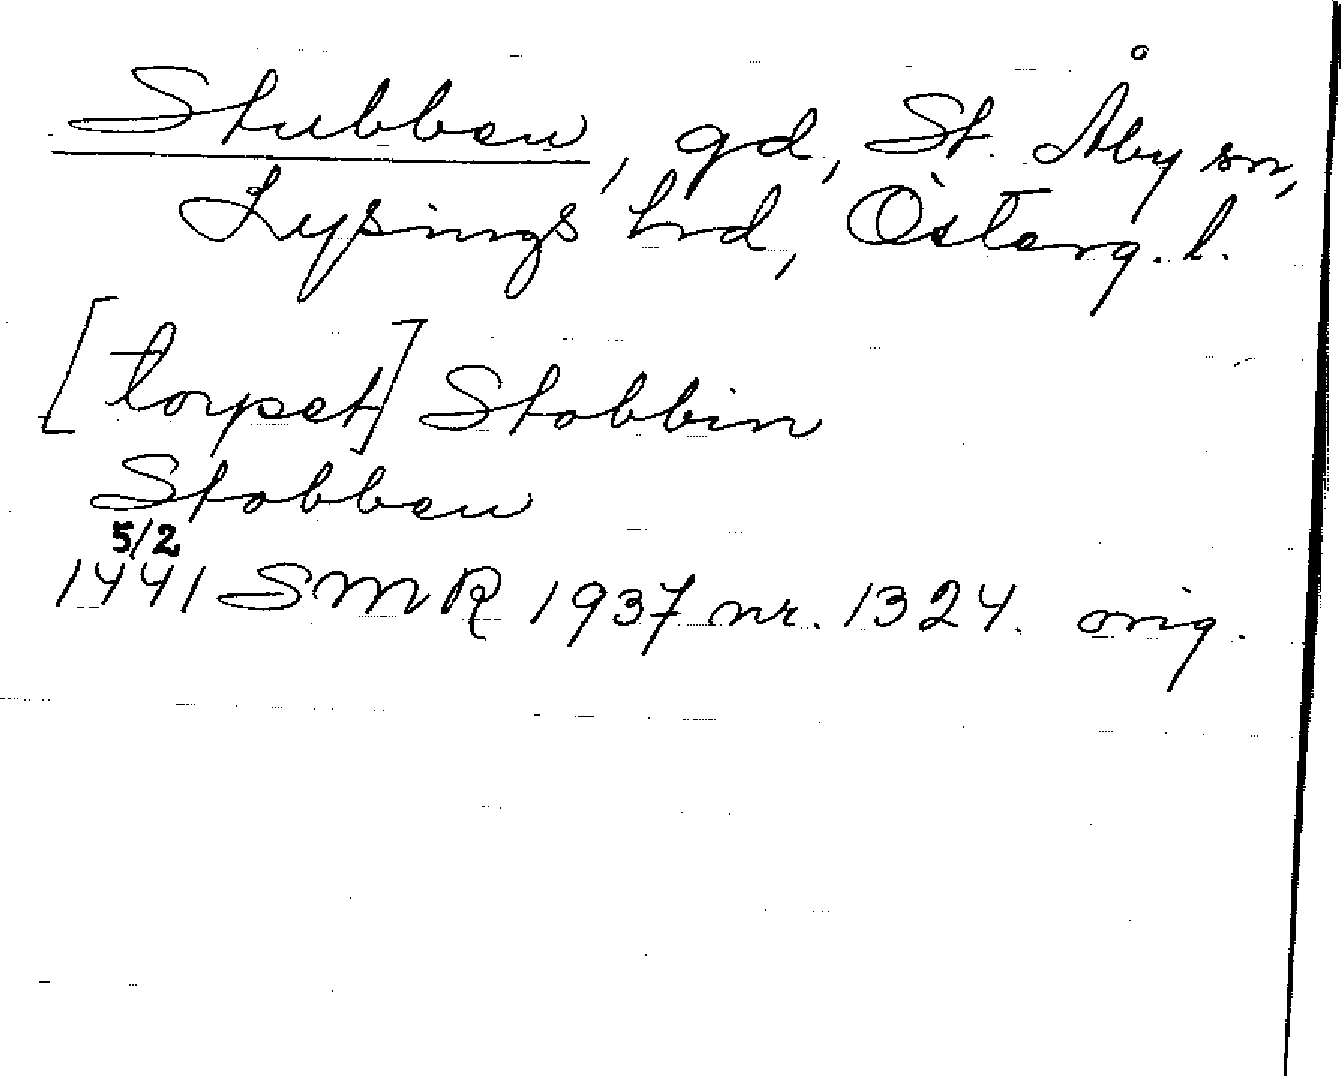 Stubben, gd, St. Åby sn,
Lysings hrd, Österg. l.
[torpet] Stobbin
Stobben
5/2
1441 SMR 1937 nr. 1324. orig.